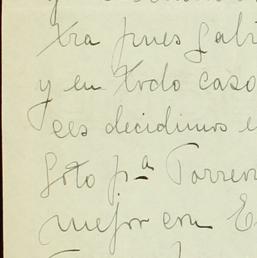 tra pues Gabr
y en todo caso
ces decidimos e
Soto pª Torren
mejor con E